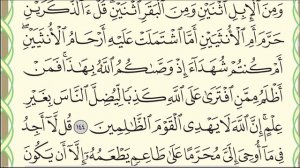 وَمِنَ ٱلْإِبِلِ ٱثْنَيْنِ وَمِنَ ٱلْبَقَرِ ٱثْنَيْنِۗ قُلْ ءَآلذَّكَرَيْنِ
حَرَّمَ أَمِ ٱلْأُنثَيَيْنِ أَمَّا ٱشْتَمَلَتْ عَلَيْهِ أَرْحَامُ ٱلْأُنثَيَيْنِۖ
أَمْ كُنتُمْ شُهَدَآءَ إِذْ وَصَّىٰكُمُ ٱللَّهُ بِهَٰذَاۚ فَمَنْ
أَظْلَمُ مِمَّنِ ٱفْتَرَىٰ عَلَى ٱللَّهِ كَذِبًا لِّيُضِلَّ ٱلنَّاسَ بِغَيْرِ
عِلْمٍۚ إِنَّ ٱللَّهَ لَا يَهْدِى ٱلْقَوْمَ ٱلظَّٰلِمِينَ ١٤٤ قُل لَّآ أَجِدُ
فِى مَآ أُوحِىَ إِلَىَّ مُحَرَّمًا عَلَىٰ طَاعِمٍ يَطْعَمُهُۥٓ إِلَّآ أَن يَكُونَ